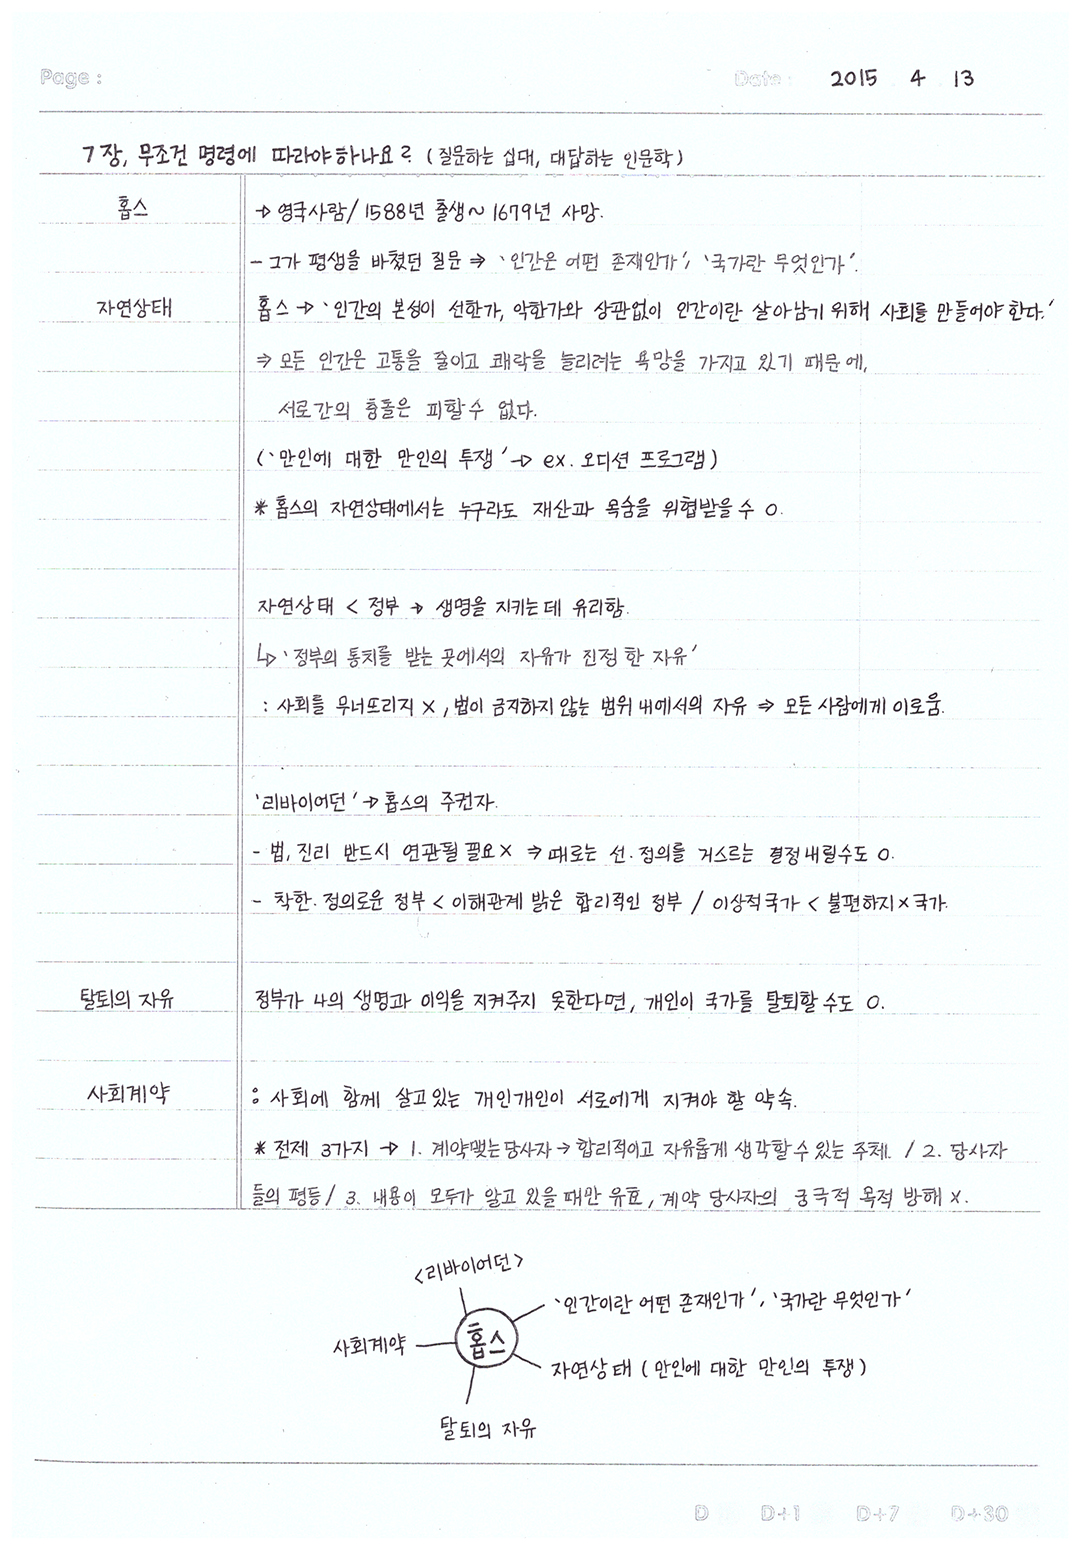 Page :
Date : 2015 4 13
7장, 무조건 명령에 따라야하나요? (질문하는 십대, 대답하는 인문학)
홉스
→ 영국사람/ 1588년 출생~ 1679년 사망.
- 그가 평생을 바쳤던 질문 ⇒ '인간은 어떤 존재인가', '국가란 무엇인가'.
자연상태
홉스 → '인간의 본성이 선한가, 악한가와 상관없이 인간이란 살아남기 위해 사회를 만들어야 한다.'
⇒ 모든 인간은 고통을 줄이고 쾌락을 늘리려는 욕망을 가지고 있기 때문에,
서로간의 충돌은 피할 수 없다.
('만인에 대한 만인의 투쟁' → ex. 오디션 프로그램)
* 홉스의 자연상태에서는 누구라도 재산과 목숨을 위협받을 수 O.
자연상태 < 정부 → 생명을 지키는데 유리함.
↳ '정부의 통치를 받는 곳에서의 자유가 진정한 자유'
: 사회를 무너뜨리지 X, 법이 금지하지 않는 범위 내에서의 자유 ⇒ 모든 사람에게 이로움.
'리바이어던' → 홉스의 주권자.
- 법, 진리 반드시 연관될 필요 X ⇒ 때로는 선·정의를 거스르는 결정 내릴수도 O.
- 착한·정의로운 정부 < 이해관계 밝은 합리적인 정부 / 이상적국가 < 불편하지X국가.
탈퇴의 자유
정부가 나의 생명과 이익을 지켜주지 못한다면, 개인이 국가를 탈퇴할 수도 O.
사회계약
: 사회에 함께 살고있는 개인개인이 서로에게 지켜야 할 약속.
* 전제 3가지 → 1. 계약맺는당사자 → 합리적이고 자유롭게 생각할 수 있는 주체. / 2. 당사자
들의 평등 / 3. 내용이 모두가 알고 있을 때만 유효, 계약 당사자의 궁극적 목적 방해 X.
<리바이어던>
'인간이란 어떤 존재인가', '국가란 무엇인가'
사회계약
홉스
자연상태 (만인에 대한 만인의 투쟁)
탈퇴의 자유
D D+1 D+7 D+30